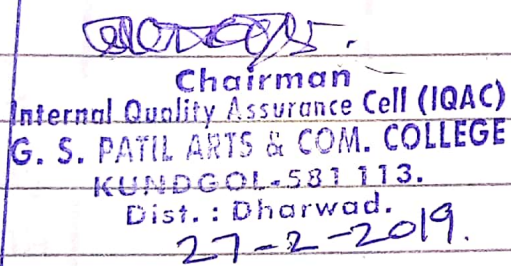 Chairman
Internal Quality Assurance Cell (IQAC)
G. S. PATIL ARTS & COM. COLLEGE
KUNDGOL-581 113.
Dist. : Dharwad.
27-2-2019.